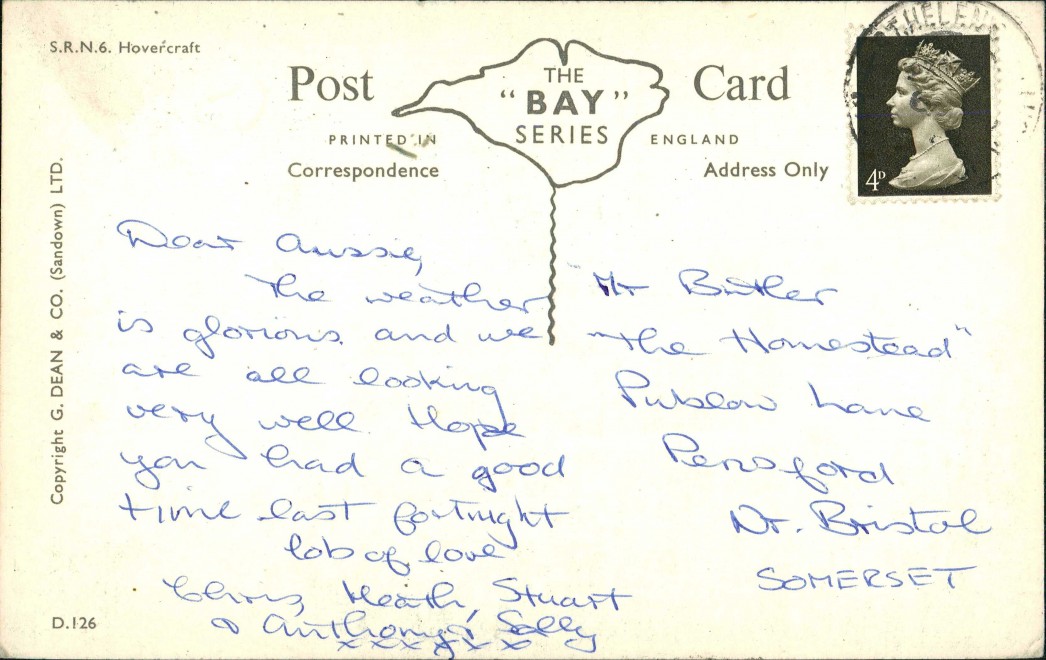 S.R.N.6. Hovercraft
Post Card
THE
"BAY"
SERIES
PRINTED IN ENGLAND
Correspondence
Address Only
4D
Copyright G. DEAN & CO. (Sandown) LTD.
Dear Aussie,
The weather
is glorious and we
are all looking
very well Hope
you had a good
time last fortnight
lob of love
Chris, Heath, Stuart
& Anthony & Sally
xxxxxx
Mr Butler
"The Homestead"
Publow Lane
Pensford
Nr. Bristol
SOMERSET
D.126